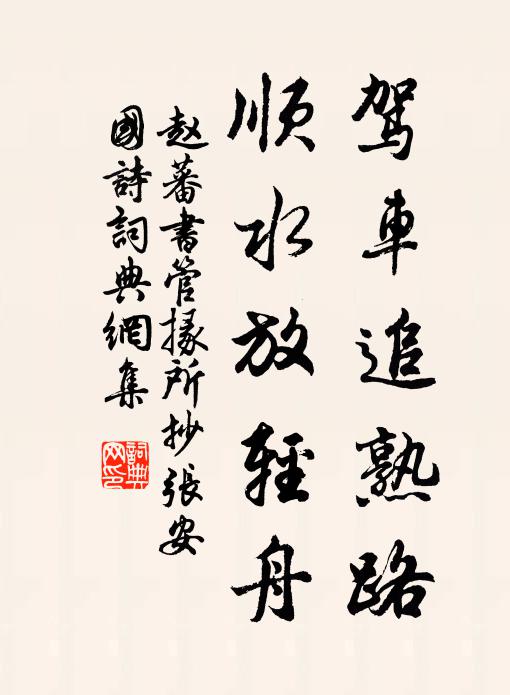 駕車追熟路
順水放輕舟
赵蕃書管掾所抄張安
國詩詞典網集
詞典
网印